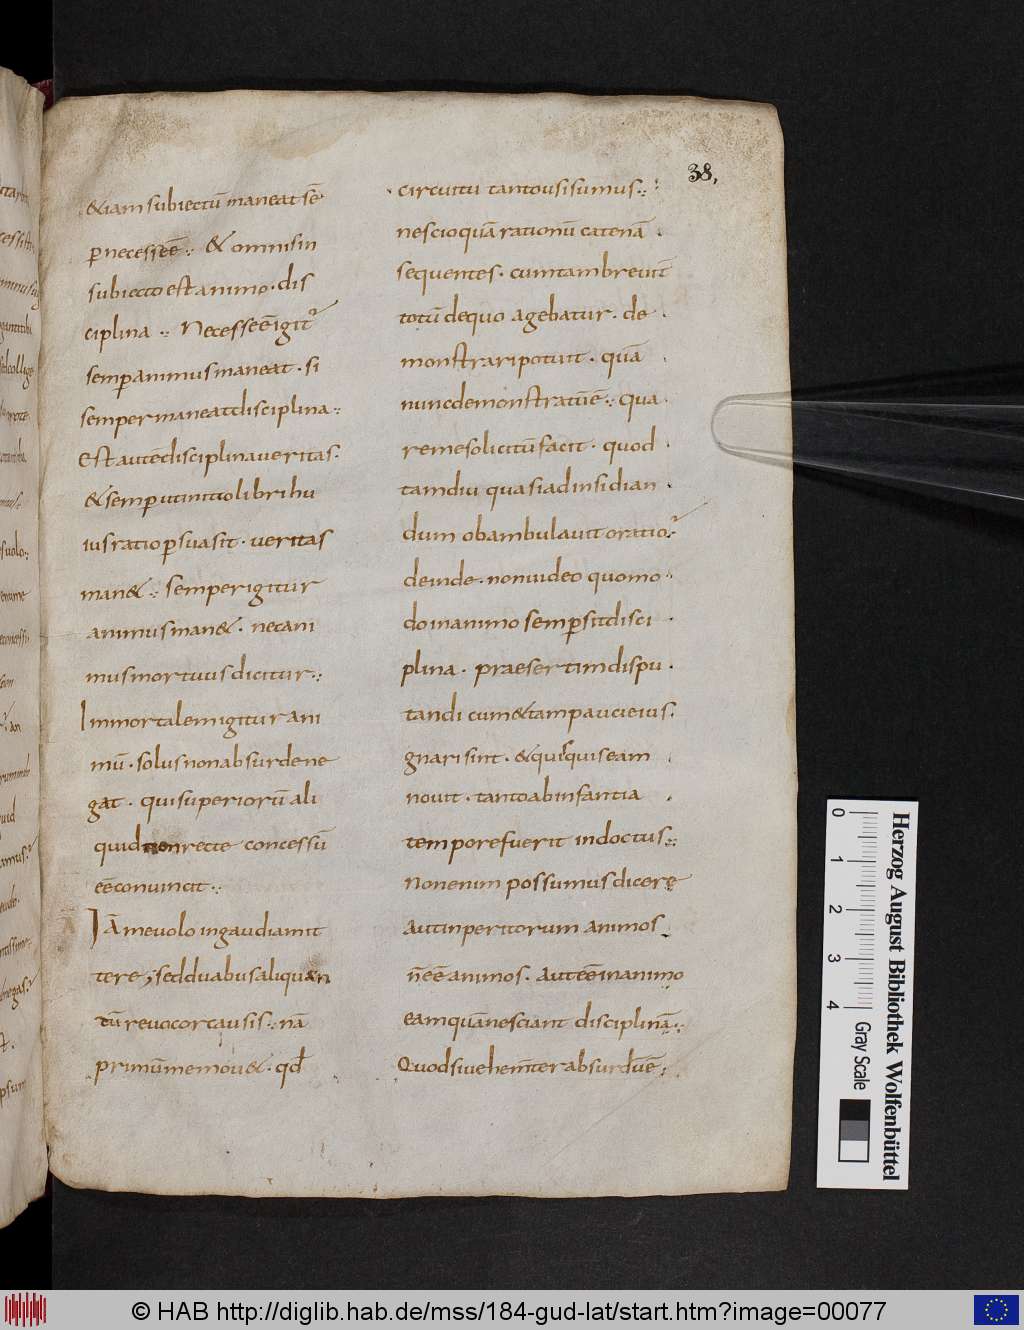 38,
&iam subiectū maneat sē
p necesseē .,. & omnisin
subiecto est animo . dis
ciplina .,. Necesseēigit᷑
semp animus maneat . si
semper maneat disciplina .,.
Est autē disciplina ueritas.
& semp ut initio libri hu
ius ratio psuasit . ueritas
man& .,. semper igitur
animus man& . nec ani
mus mortuus dicitur .,.
Immortalem igitur ani
mū . solus non absurde ne
gat . qui superiorū ali
quid non recte concessū
eē conuincit .,.
Iā me uolo in gaudia mit
tere ; sed duabus aliquan
tū reuocor causis .,. nā
primū me mou& . qd
circuitu tanto usi sumus .,.
nescio quā rationū catenā
sequentes . cum tam breuit᷑
totū de quo agebatur . de
monstrari potuit . quā
nunc demonstratū ē .,. qua
re me solicitū facit . quod
tamdiu quasi ad insidian
dum obambulauit oratio.
deinde . non uideo quomo
do in animo semp sit disci
plina . praesertim dispu
tandi cum & tam pauci eius
gnari sint . & quisquis eam
nouit . tanto ab infantia
tempore fuerit indoctus .,.
Non enim possumus dicere
aut inperitorum animos
n̄ eē animos . aut eē in animo
eam quā nesciant disciplinā .,.
Quod si uehemt̄er absurdū ē ;
Herzog August Bibliothek Wolfenbüttel
0 1 2 3 4
Gray Scale
© HAB http://diglib.hab.de/mss/184-gud-lat/start.htm?image=00077